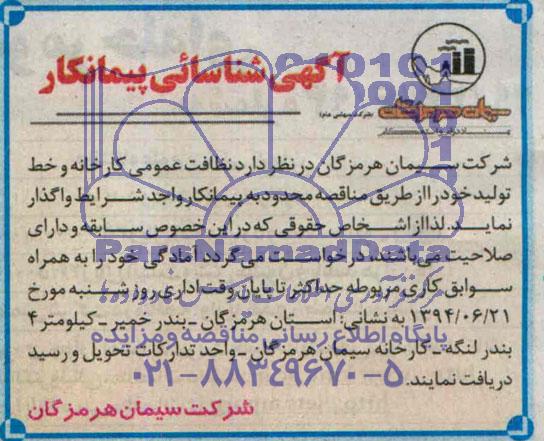 آگهی شناسائی پیمانکار
سیمان هرمزگان
(شرکت سهامی عام)
شرکت سیمان هرمزگان در نظر دارد نظافت عمومی کارخانه و خط
تولید خود را از طریق مناقصه محدود به پیمانکار واجد شرایط واگذار
نماید. لذا از اشخاص حقوقی که در این خصوص سابقه و دارای
صلاحیت می‌باشند، درخواست می‌گردد آمادگی خود را به همراه
سوابق کاری مربوطه حداکثر تا پایان وقت اداری روز شنبه مورخ
۱۳۹۴/۰۶/۲۱ به نشانی: استان هرمزگان - بندر خمیر - کیلومتر ۴
بندر لنگه - کارخانه سیمان هرمزگان - واحد تدارکات تحویل و رسید
دریافت نمایند.
شرکت سیمان هرمزگان
ParsNamadData
پایگاه اطلاع رسانی مناقصه و مزایده
۰۲۱-۸۸۳۴۹۶۷۰-۵